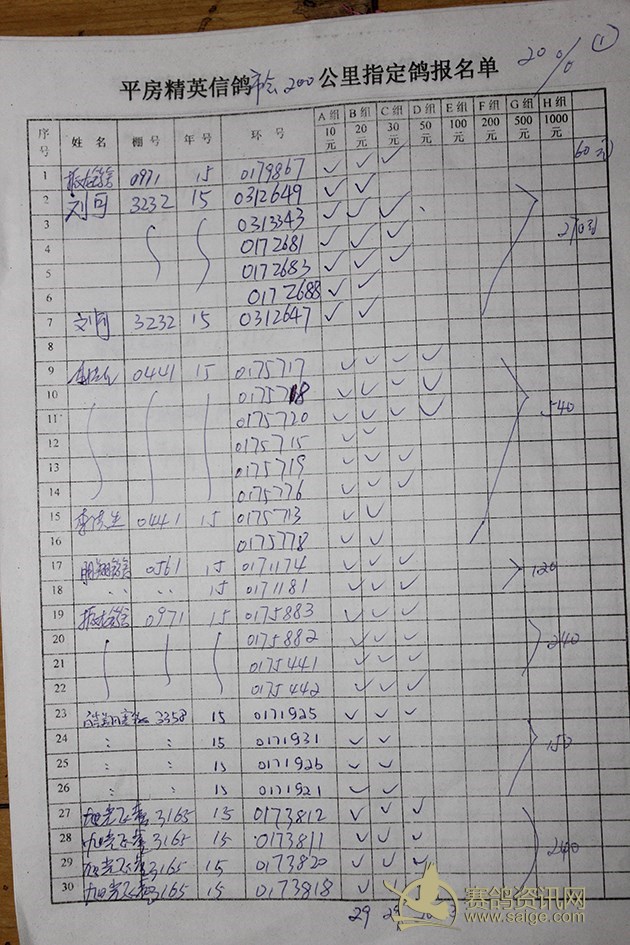 20% ①
平房精英信鸽 200公里指定鸽报名单
序号 姓名 棚号 年号 环号 A组10元 B组20元 C组30元 D组50元 E组100元 F组200元 G组500元 H组1000元
1 0971 15 0179867 ✓ ✓ ✓ 60元
2 刘可 3232 15 0312649 ✓ ✓
3 0313343 ✓ ✓ ✓
4 0172681 ✓ ✓ ✓
5 0172683 ✓ ✓ ✓
6 0172688 ✓ ✓
7 刘可 3232 15 0312647 ✓ ✓
8
9 0441 15 0175717 ✓ ✓ ✓ ✓
10 0175718 ✓ ✓ ✓ ✓
11 0175720 ✓ ✓ ✓ ✓ 540
12 0175715 ✓ ✓
13 0175719 ✓ ✓ ✓
14 0175776 ✓ ✓ ✓
15 0441 15 0175713 ✓ ✓
16 0175778 ✓ ✓
17 0561 15 0171174 ✓ ✓ ✓ 120
18 15 0171181 ✓ ✓ ✓
19 0971 15 0175883 ✓ ✓ ✓
20 0175882 ✓ ✓ ✓ 240
21 0175441 ✓ ✓ ✓
22 0175442 ✓ ✓ ✓
23 3358 15 0171925 ✓ ✓ ✓
24 15 0171931 ✓ ✓ 150
25 15 0171926 ✓ ✓
26 15 0171921 ✓ ✓
27 3165 15 0173812 ✓ ✓ ✓
28 3165 15 0173811 ✓ ✓ ✓
29 3165 15 0173820 ✓ ✓ ✓ 240
30 3165 15 0173818 ✓
29
赛鸽资讯网
www.saige.com